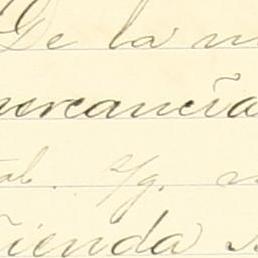 De la m
mercancia
tal. s/g. n
ienda